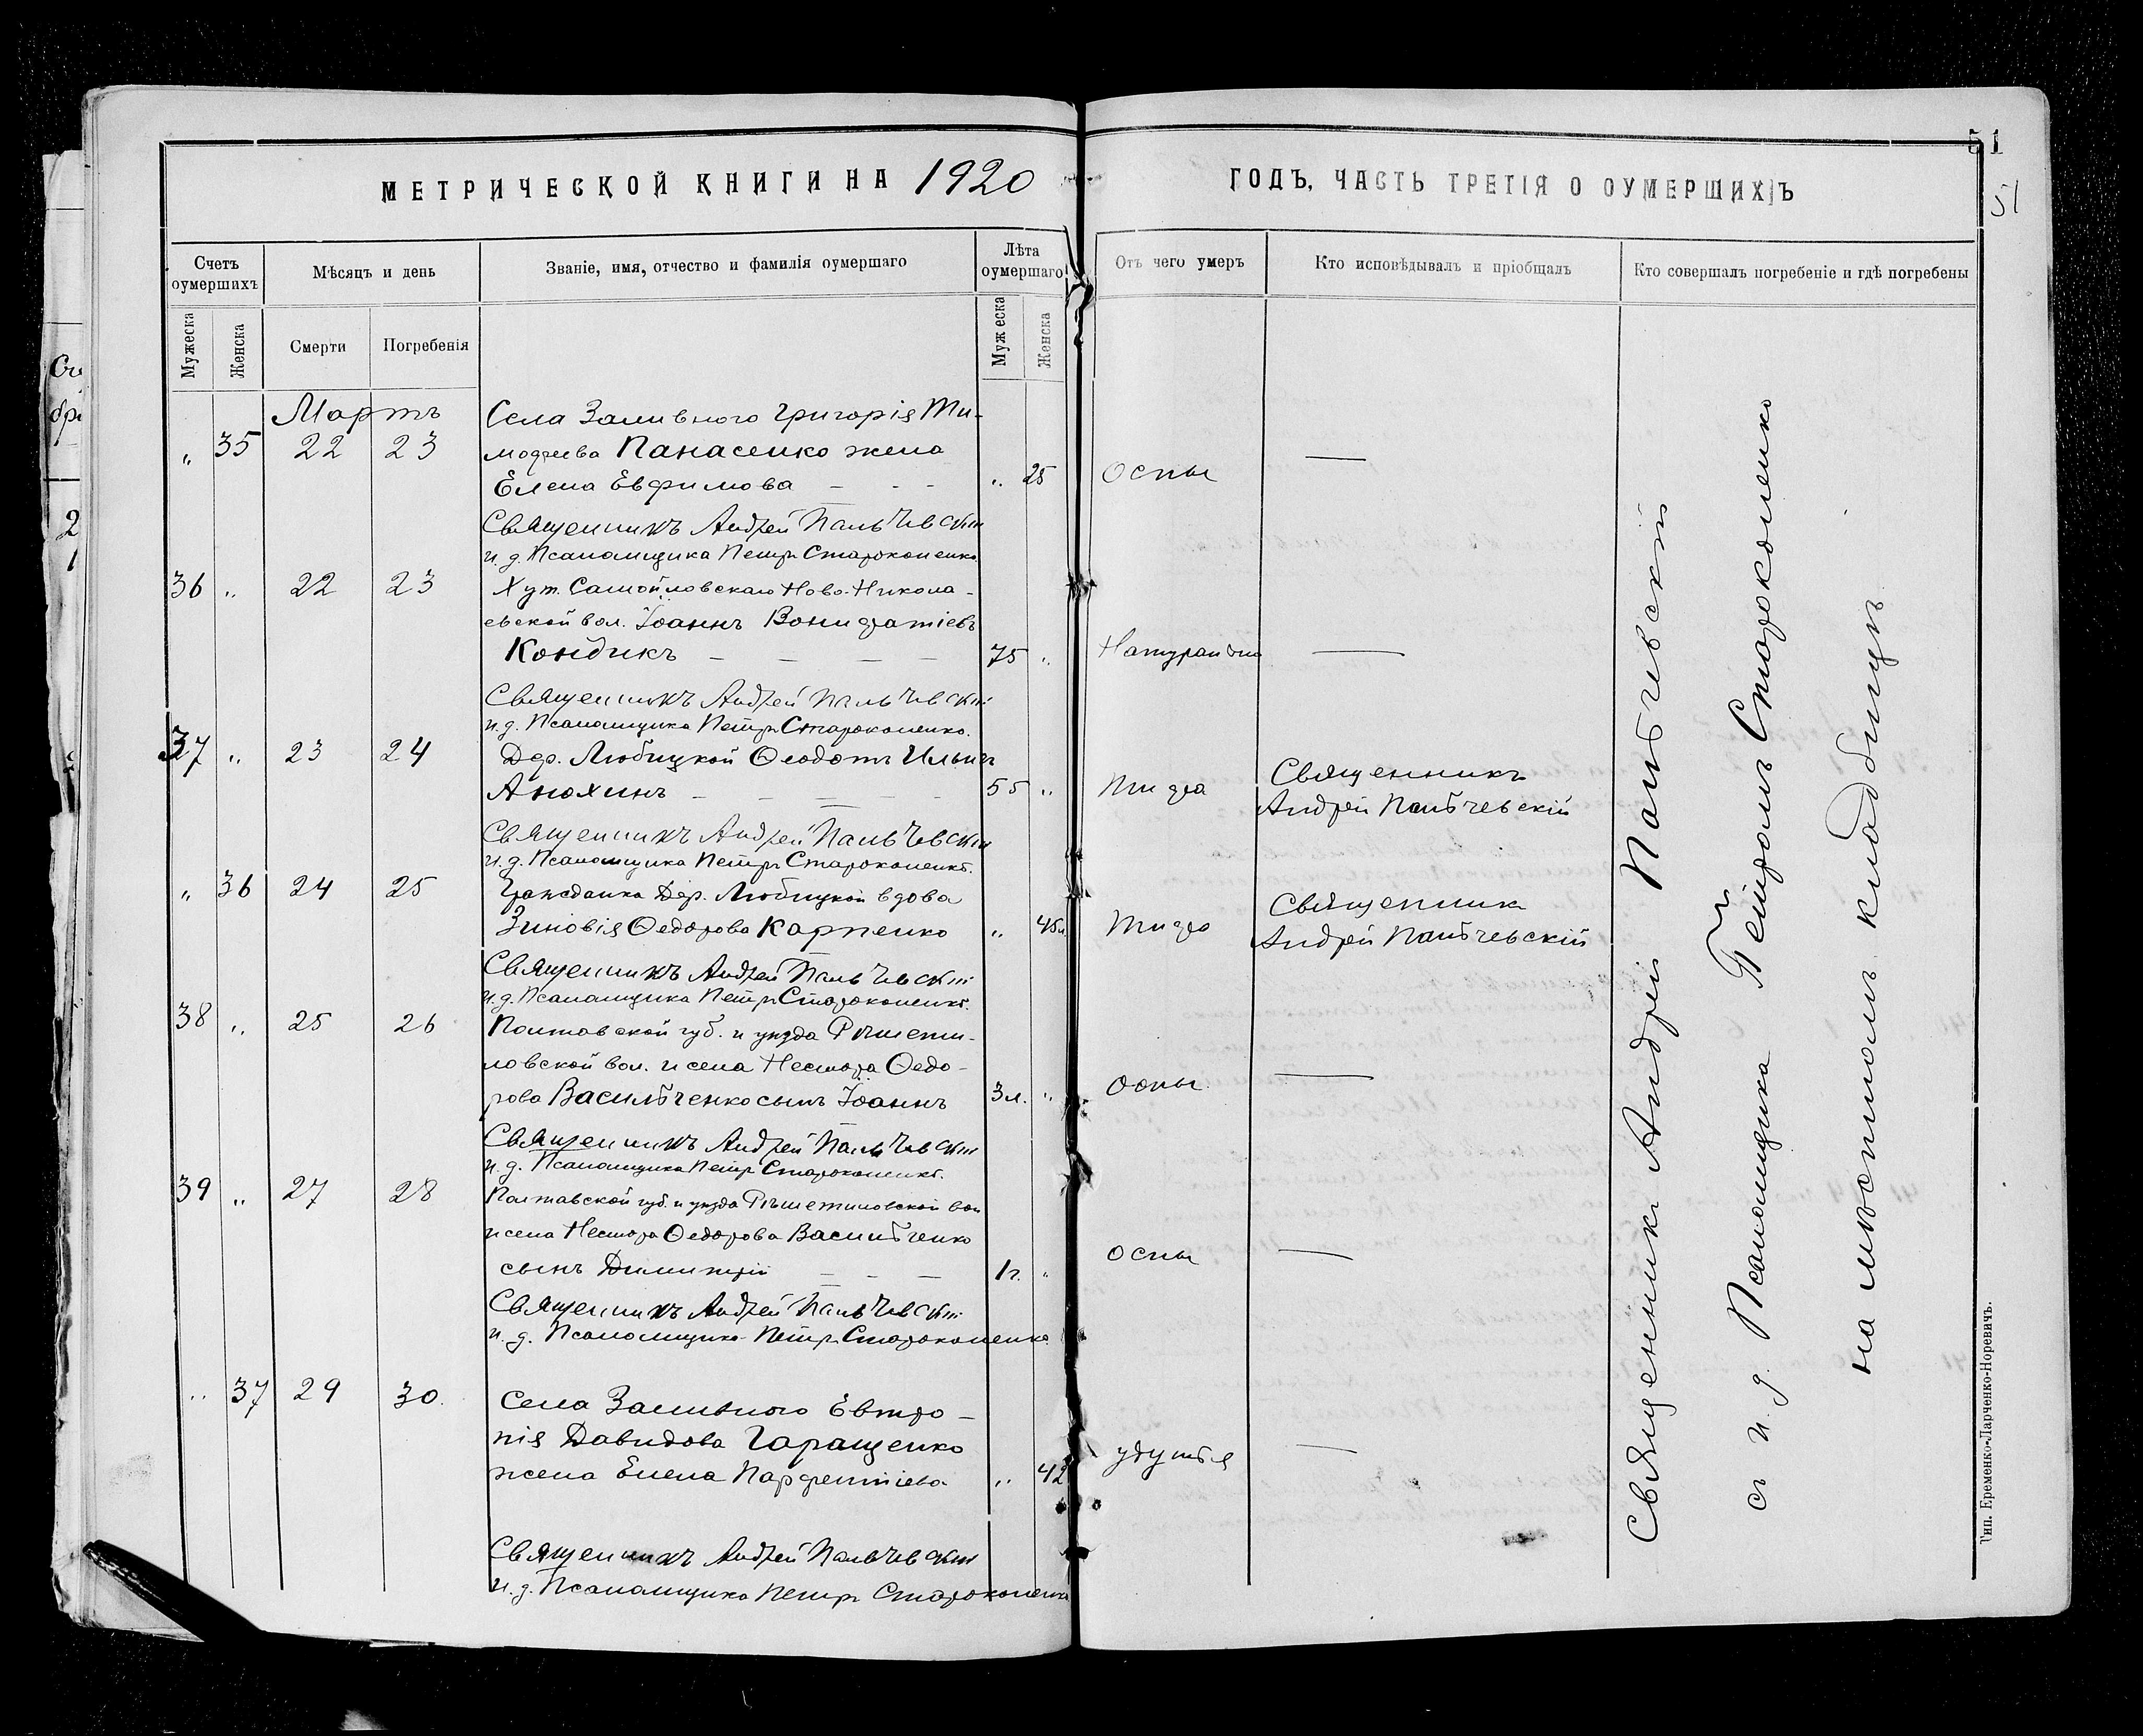 51
МЕТРИЧЕСКОЙ КНИГИ НА 1920
ГОДЪ, ЧАСТЬ ТРЕТІЯ О ОУМЕРШИХЪ
51
Счетъ оумершихъ
Мѣсяцъ и день
Званіе, имя, отчество и фамилія оумершаго
Лѣта оумершаго
Отъ чего умеръ
Кто исповѣдывалъ и пріобщалъ
Кто совершалъ погребеніе и гдѣ погребены
Мужеска
Женска
Смерти
Погребенія
Мужеска
Женска
Мартъ
Села Заливного Григорія Ти-
„ 35 22 23 мофеева Панасенко жена
Елена Евфимова – - - „ 25 Оспы —
Священникъ Андрей Пальчевскій
и. д. Псаломщика Петръ Староконенко
36 „ 22 23 Хут. Самойловскаго Ново-Никола-
евской вол. Іоаннъ Вонифатіевъ
Кондикъ – – – – 75 „ Натурально —
Священникъ Андрей Пальчевскій
и. д. Псаломщика Петръ Староконенко.
37 „ 23 24 Дер. Любицкой Ѳеодотъ Ильичъ
Анохинъ – – – – 55 „ Тифа Священникъ
Андрей Пальчевскій
Священникъ Андрей Пальчевскій
и. д. Псаломщика Петръ Староконенко.
„ 36 24 25 Гражданка Дер. Любицкой вдова
Зиновія Ѳедорова Карпенко „ 45 л. Тифа Священникъ
Андрей Пальчевскій
Священникъ Андрей Пальчевскій
и. д. Псаломщика Петръ Староконенко.
38 „ 25 26 Полтавской губ. и уѣзда Рѣшети-
ловской вол. и села Нестора Ѳедо-
рова Васильченко сынъ Іоаннъ 3 л. „ Оспы. —
Священникъ Андрей Пальчевскій
и. д. Псаломщика Петръ Староконенко.
39 „ 27 28 Полтавской губ. и уѣзда Рѣшетиловской вол
и села Нестора Ѳедорова Васильченко
сынъ Димитрій – – – 1 г. „ Оспы —
Священникъ Андрей Пальчевскій
и. д. Псаломщика Петръ Староконенко
„ 37 29 30. Села Заливного Евтро-
пія Давидова Гаращенко
жена Елена Парфентіева „ 42 удушья —
Священникъ Андрей Пальчевскій
и. д. Псаломщика Петръ Староконенко
Священникъ Андрей Пальчевскій
съ и. д. Псаломщика Петромъ Староконенко
на мѣстномъ кладбищѣ
Тип. Еременко-Ларченко-Норевичъ.